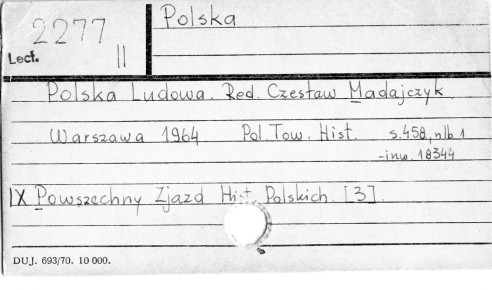 Polska
2277
Lect.
II
Polska Ludowa. Red. Czesław Madajczyk
Warszawa 1964 Pol. Tow. Hist. s. 458, nlb 1
-inw. 18344
IX Powszechny Zjazd Hist. Polskich. [3].
DUJ. 693/70. 10 000.